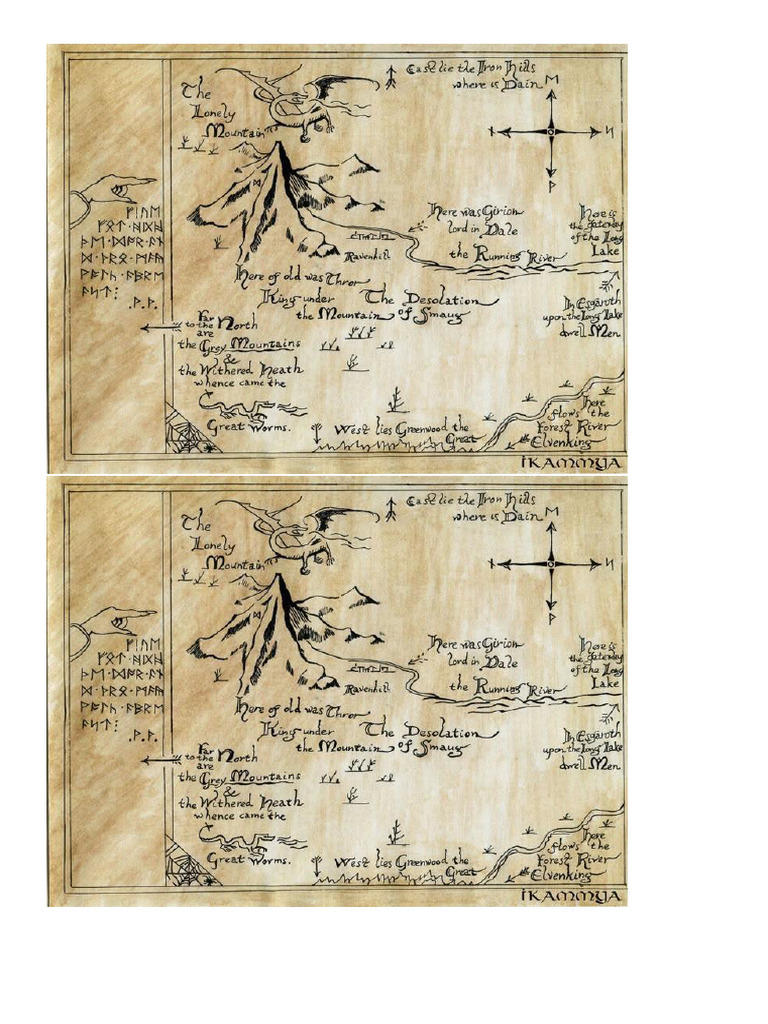 The
Lonely
Mountain
East lie the Iron Hills
where is Dain
Here was Girion
lord in Dale
Ravenhill
the Running River
Here is
the gateway
of the Long
Lake
Here of old was Thror
King under
the Mountain
The Desolation
of Smaug
In Esgaroth
upon the Long Lake
dwell Men
Far
to the North
are
the Grey Mountains
&
the Withered Heath
whence came the
Great Worms.
West lies Greenwood the
Great
Here
flows the
Forest River
Elvenking
The
Lonely
Mountain
East lie the Iron Hills
where is Dain
Here was Girion
lord in Dale
Ravenhill
the Running River
Here is
the gateway
of the Long
Lake
Here of old was Thror
King under
the Mountain
The Desolation
of Smaug
In Esgaroth
upon the Long Lake
dwell Men
Far
to the North
are
the Grey Mountains
&
the Withered Heath
whence came the
Great Worms.
West lies Greenwood the
Great
Here
flows the
Forest River
Elvenking